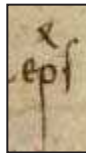 x
.epſ